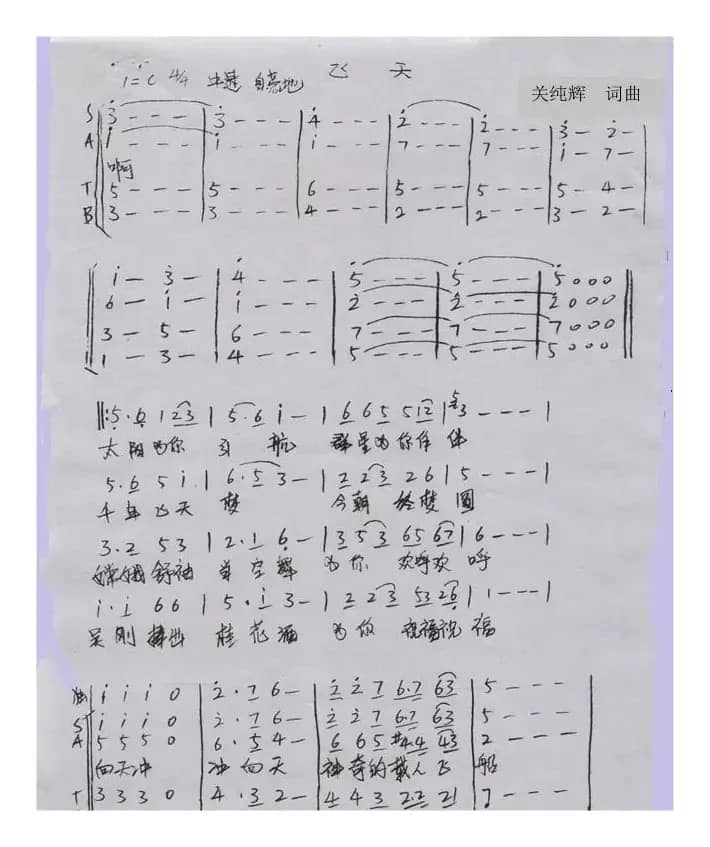 飞 天
1=C 4/4 中速 自豪地
关纯辉 词曲
S 3 - - - | 3 - - - | 4 - - - | 2 - - - | 2 - - - | 3 - 2 - |
A 1 - - - | 1 - - - | 1 - - - | 7 - - - | 7 - - - | 1 - 7 - |
啊
T 5 - - - | 5 - - - | 6 - - - | 5 - - - | 5 - - - | 5 - 4 - |
B 3 - - - | 3 - - - | 4 - - - | 2 - - - | 2 - - - | 3 - 2 - |
1 - 3 - | 4 - - - | 5 - - - | 5 - - - | 5 0 0 0 ||
6 - 1 - | 1 - - - | 2 - - - | 2 - - - | 2 0 0 0 ||
3 - 5 - | 6 - - - | 7 - - - | 7 - - - | 7 0 0 0 ||
1 - 3 - | 4 - - - | 5 - - - | 5 - - - | 5 0 0 0 ||
||: 5 . 6 1 2 3 | 5 . 6 1 - | 6 6 5 5 1 2 | 5 3 - - - |
太阳为你 引 航 群星为你作 伴
5 . 6 5 1 . | 6 . 5 3 - | 2 2 3 2 6 | 5 - - - |
千年飞天 梦 今朝 终梦 圆
3 . 2 5 3 | 2 . 1 6 - | 3 5 3 6 5 6 7 | 6 - - - |
嫦娥舒袖 舞 为你 欢呼欢 呼
1 . 1 6 6 | 5 . 1 3 - | 2 2 3 5 3 2 6 | 1 - - - |
吴刚捧出 桂花酒 为你 祝福祝 福
独 1 1 1 0 | 2 . 7 6 - | 2 2 7 6 . 7 6 3 | 5 - - - |
S 1 1 1 0 | 2 . 7 6 - | 2 2 7 6 . 7 6 3 | 5 - - - |
A 5 5 5 0 | 6 . 5 4 - | 6 6 5 #4 . 4 4 3 | 2 - - - |
向天冲 冲向天 神奇的载人飞 船
T 3 3 3 0 | 4 . 3 2 - | 4 4 3 2 . 2 2 1 | 7 - - - |